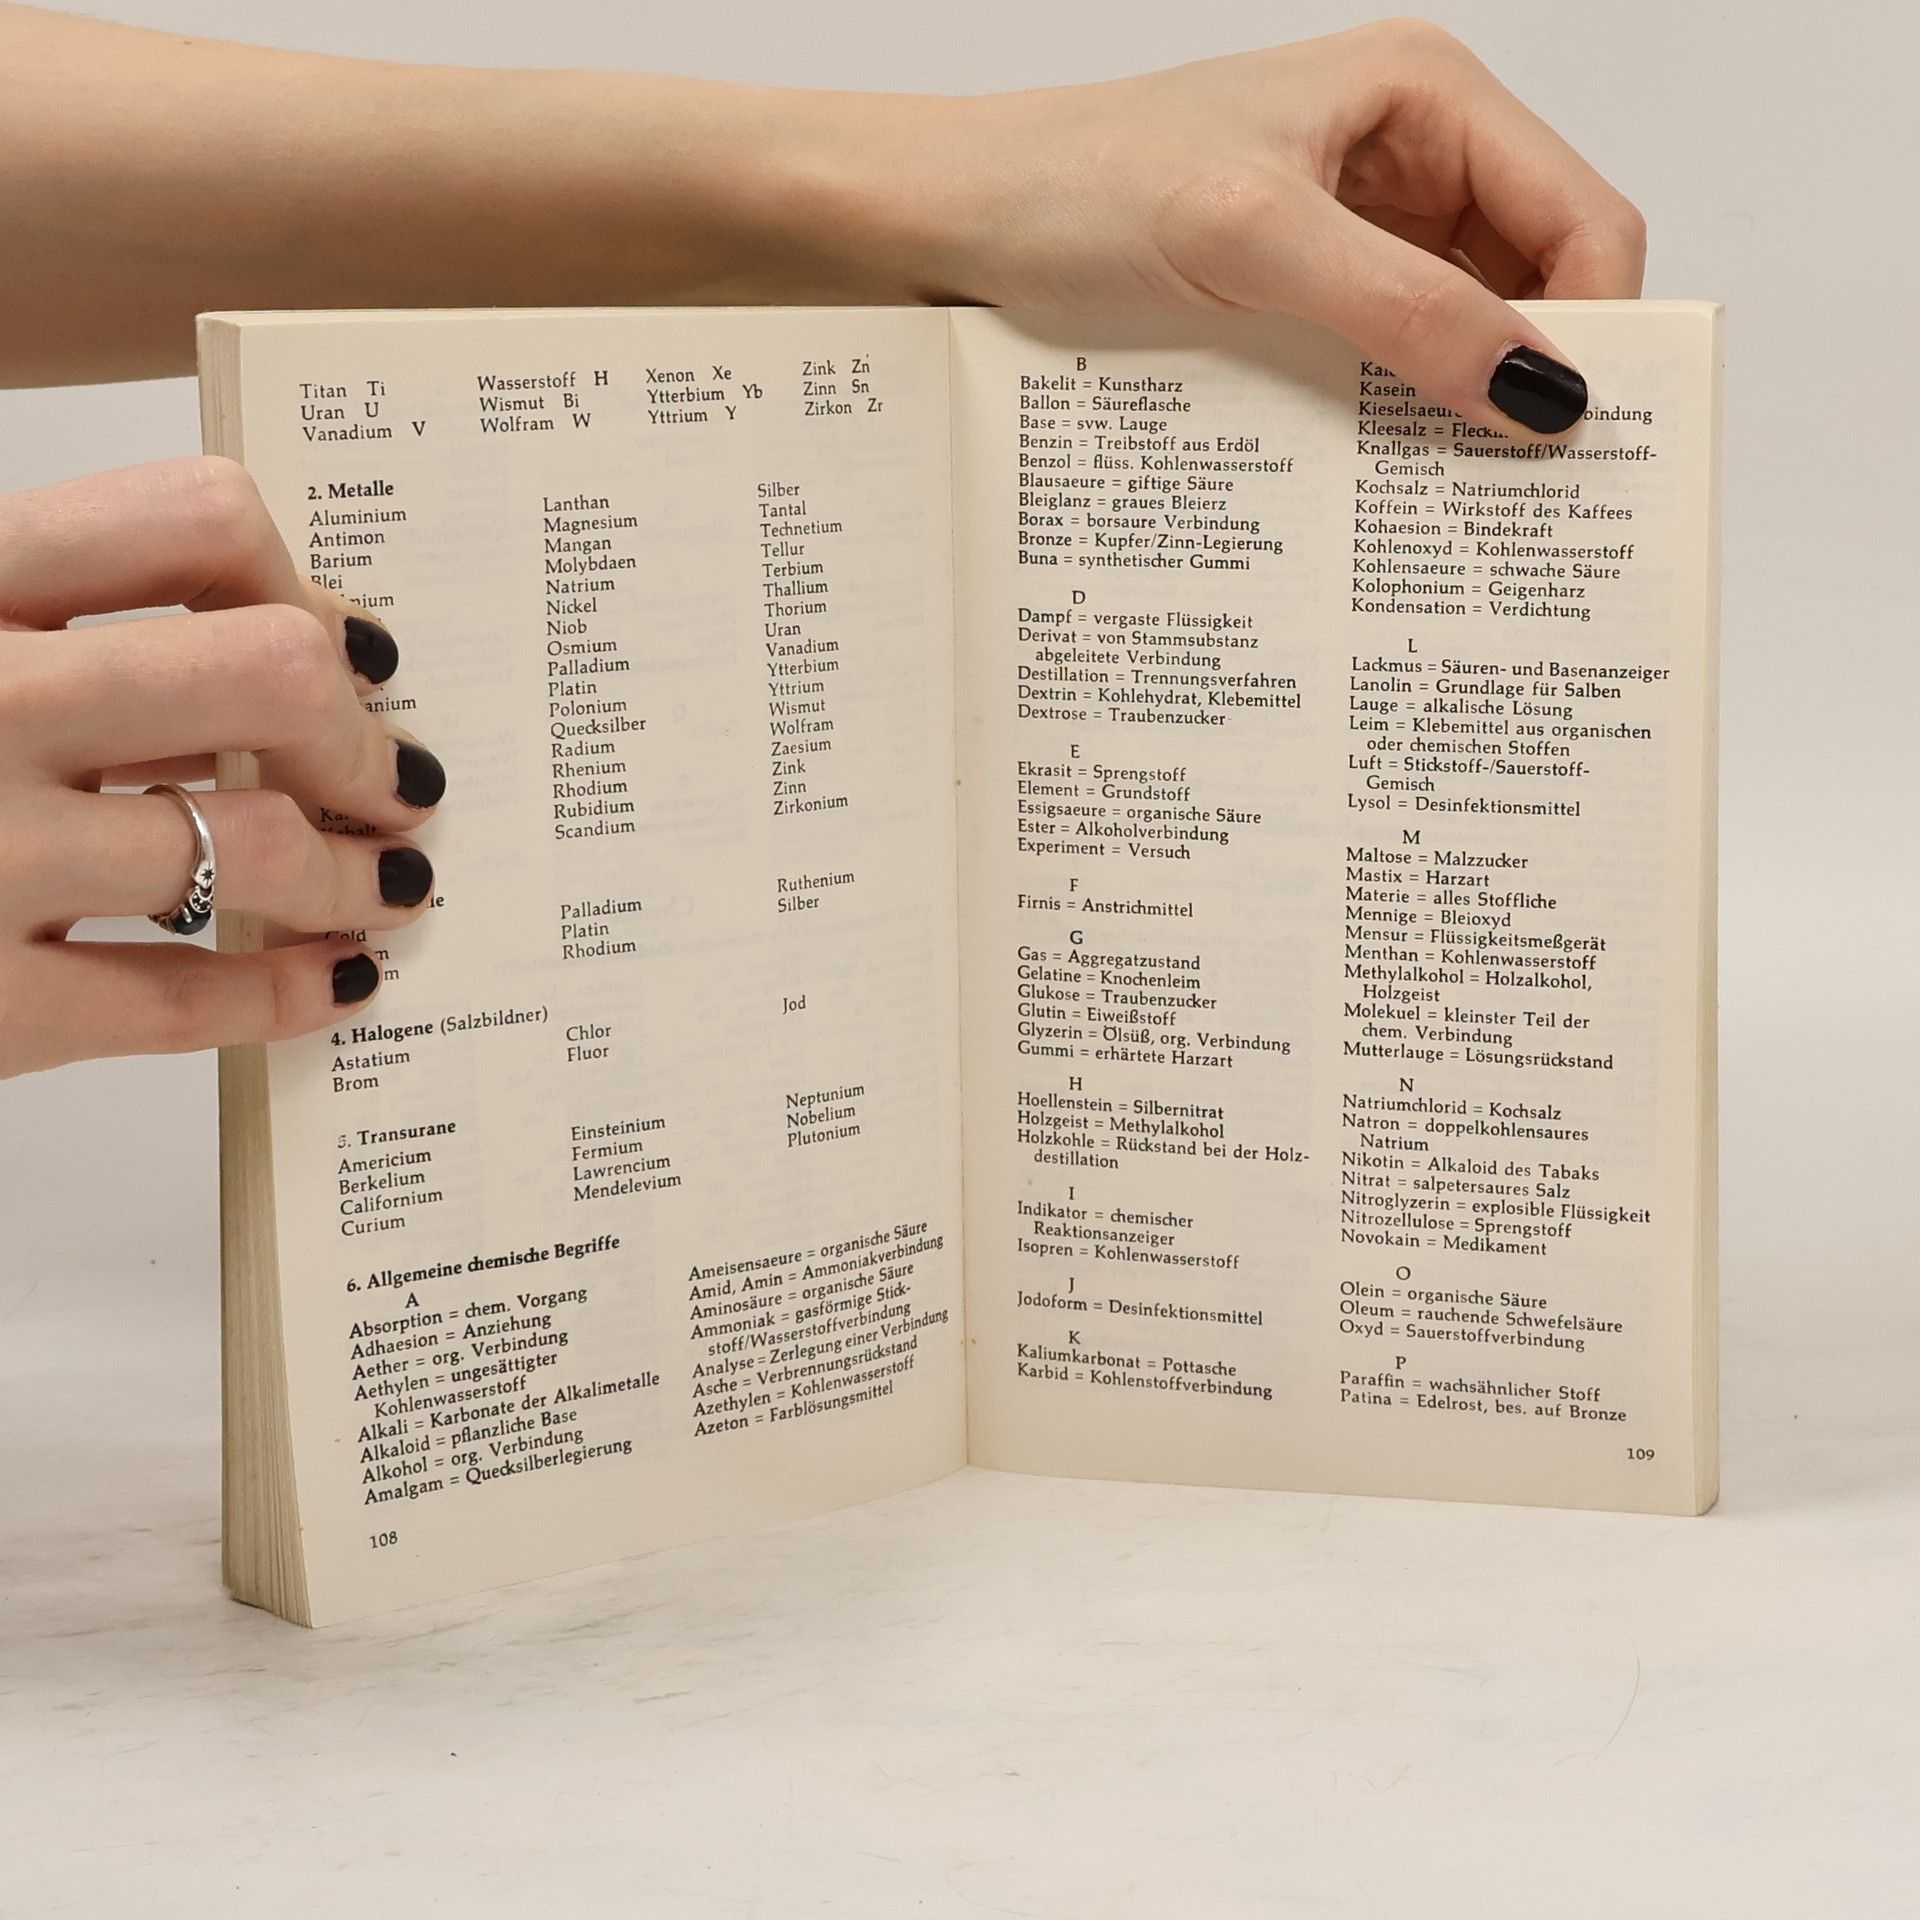 Titan Ti
Uran U
Vanadium V
Wasserstoff H
Wismut Bi
Wolfram W
Xenon Xe
Ytterbium Yb
Yttrium Y
Zink Zn
Zinn Sn
Zirkon Zr
2. Metalle
Aluminium
Antimon
Barium
Blei
Lanthan
Magnesium
Mangan
Molybdaen
Natrium
Nickel
Niob
Osmium
Palladium
Platin
Polonium
Quecksilber
Radium
Rhenium
Rhodium
Rubidium
Scandium
Silber
Tantal
Technetium
Tellur
Terbium
Thallium
Thorium
Uran
Vanadium
Ytterbium
Yttrium
Wismut
Wolfram
Zaesium
Zink
Zinn
Zirkonium
Gold
Palladium
Platin
Rhodium
Ruthenium
Silber
4. Halogene (Salzbildner)
Astatium
Brom
Chlor
Fluor
Jod
5. Transurane
Americium
Berkelium
Californium
Curium
Einsteinium
Fermium
Lawrencium
Mendelevium
Neptunium
Nobelium
Plutonium
6. Allgemeine chemische Begriffe
A
Absorption = chem. Vorgang
Adhaesion = Anziehung
Aether = org. Verbindung
Aethylen = ungesättigter
Kohlenwasserstoff
Alkali = Karbonate der Alkalimetalle
Alkaloid = pflanzliche Base
Alkohol = org. Verbindung
Amalgam = Quecksilberlegierung
Ameisensaeure = organische Säure
Amid, Amin = Ammoniakverbindung
Aminosäure = organische Säure
Ammoniak = gasförmige Stick-
stoff/Wasserstoffverbindung
Analyse = Zerlegung einer Verbindung
Asche = Verbrennungsrückstand
Azethylen = Kohlenwasserstoff
Azeton = Farblösungsmittel
108
B
Bakelit = Kunstharz
Ballon = Säureflasche
Base = svw. Lauge
Benzin = Treibstoff aus Erdöl
Benzol = flüss. Kohlenwasserstoff
Blausaeure = giftige Säure
Bleiglanz = graues Bleierz
Borax = borsaure Verbindung
Bronze = Kupfer/Zinn-Legierung
Buna = synthetischer Gummi
D
Dampf = vergaste Flüssigkeit
Derivat = von Stammsubstanz
abgeleitete Verbindung
Destillation = Trennungsverfahren
Dextrin = Kohlehydrat, Klebemittel
Dextrose = Traubenzucker
E
Ekrasit = Sprengstoff
Element = Grundstoff
Essigsaeure = organische Säure
Ester = Alkoholverbindung
Experiment = Versuch
F
Firnis = Anstrichmittel
G
Gas = Aggregatzustand
Gelatine = Knochenleim
Glukose = Traubenzucker
Glutin = Eiweißstoff
Glyzerin = Ölsüß, org. Verbindung
Gummi = erhärtete Harzart
H
Hoellenstein = Silbernitrat
Holzgeist = Methylalkohol
Holzkohle = Rückstand bei der Holz-
destillation
I
Indikator = chemischer
Reaktionsanzeiger
Isopren = Kohlenwasserstoff
J
Jodoform = Desinfektionsmittel
K
Kaliumkarbonat = Pottasche
Karbid = Kohlenstoffverbindung
Kasein
Kleesalz =
Knallgas = Sauerstoff/Wasserstoff-
Gemisch
Kochsalz = Natriumchlorid
Koffein = Wirkstoff des Kaffees
Kohaesion = Bindekraft
Kohlenoxyd = Kohlenwasserstoff
Kohlensaeure = schwache Säure
Kolophonium = Geigenharz
Kondensation = Verdichtung
L
Lackmus = Säuren- und Basenanzeiger
Lanolin = Grundlage für Salben
Lauge = alkalische Lösung
Leim = Klebemittel aus organischen
oder chemischen Stoffen
Luft = Stickstoff-/Sauerstoff-
Gemisch
Lysol = Desinfektionsmittel
M
Maltose = Malzzucker
Mastix = Harzart
Materie = alles Stoffliche
Mennige = Bleioxyd
Mensur = Flüssigkeitsmeßgerät
Menthan = Kohlenwasserstoff
Methylalkohol = Holzalkohol,
Holzgeist
Molekuel = kleinster Teil der
chem. Verbindung
Mutterlauge = Lösungsrückstand
N
Natriumchlorid = Kochsalz
Natron = doppelkohlensaures
Natrium
Nikotin = Alkaloid des Tabaks
Nitrat = salpetersaures Salz
Nitroglyzerin = explosible Flüssigkeit
Nitrozellulose = Sprengstoff
Novokain = Medikament
O
Olein = organische Säure
Oleum = rauchende Schwefelsäure
Oxyd = Sauerstoffverbindung
P
Paraffin = wachsähnlicher Stoff
Patina = Edelrost, bes. auf Bronze
109